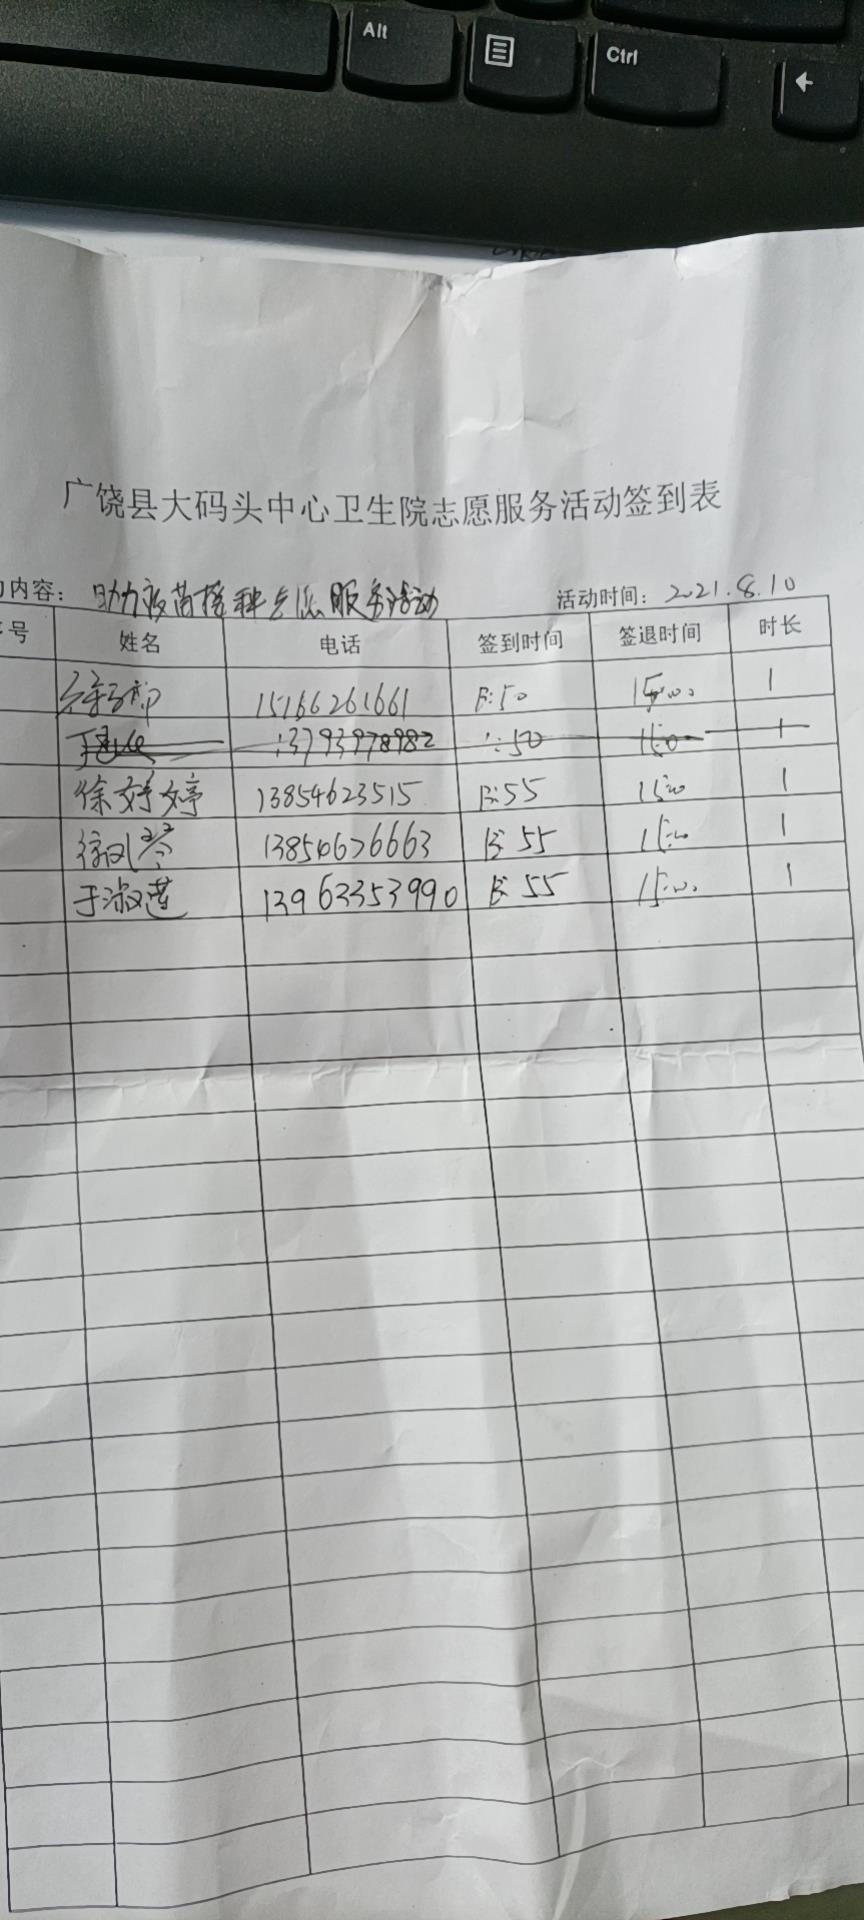 Alt
Ctrl
广饶县大码头中心卫生院志愿服务活动签到表
内容: 助力疫苗接种志愿服务活动 活动时间: 2021.8.10
号 姓名 电话 签到时间 签退时间 时长
15166261661 :50 15:00 1
13793978982 :50 1
徐婷婷 13854623515 :55 15:00 1
徐风琴 13854676663 55 15:00 1
于淑莲 13963353990 55 15:00 1